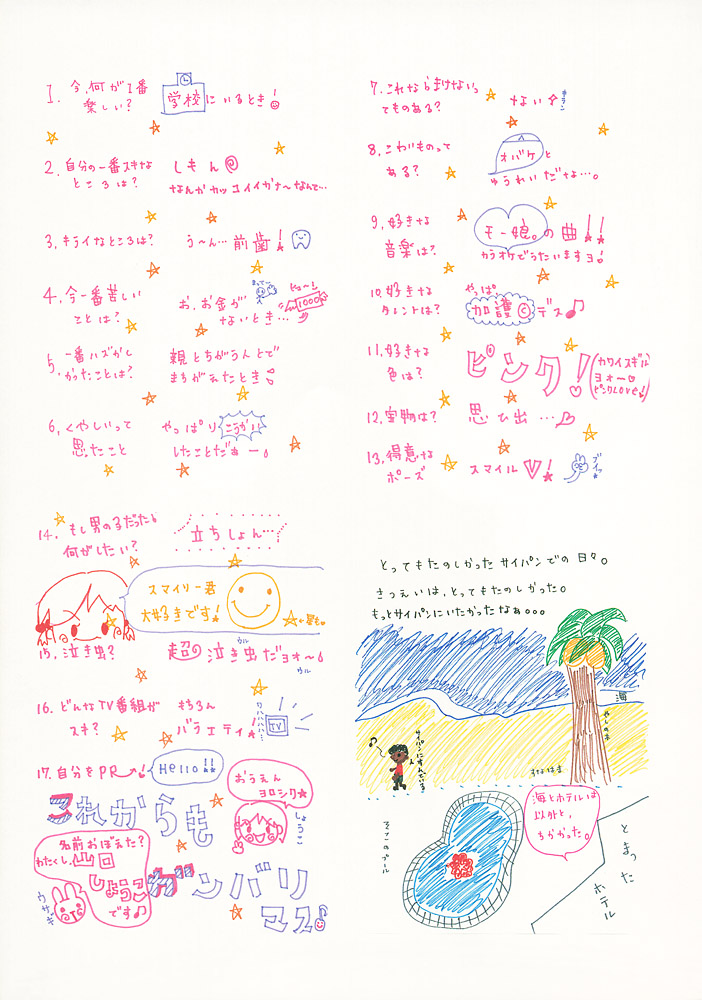 1. 今、何が1番
楽しい？
学校にいるとき！
2. 自分の一番スキな
ところは？
しもん
なんかカッコイイカナ〜なんて…
3. キライなところは？
う〜ん…前歯！
4. 今一番苦しい
ことは？
お、お金が
ないとき…
まって〜
ピュー！
1000
5. 一番ハズかし
かったことは？
親とちがう人とで
まちがえたとき
6. くやしいって
思ったこと
やっぱりこうかい
したことだぁー。
7. これならまけないっ
てものある？
ない☆
キラン
8. こわいものって
ある？
オバケと
ゆうれいだなぁ…。
9. 好きな
音楽は？
モー娘。の曲！！
カラオケでうたいますヨ！
10. 好きな
タレントは？
やっぱ
加護©デス♪
11. 好きな
色は？
ピンク！
（カワイスギル
ヨォー
ピンクLOVE！）
12. 宝物は？
思ひ出…
13. 得意な
ポーズ
スマイルV！
ブイッ
14. もし男の子だったら
何がしたい？
立ちしょん…
スマイリー君
大好きです！
☆←星も。
15. 泣き虫？
超の泣き虫だヨォ〜！
ウル
ウル
16. どんなTV番組が
スキ？
もちろん
バラエティ！
ワハハハハ
TV
17. 自分をPR
Hello!!
おうえん
ヨロシク☆
しょうこ
これからも
ガンバリ
マス♪
名前おぼえた？
わたくし、山口
しょうこ
です♪
ウサギ
とってもたのしかったサイパンでの日々。
さつえいは、とってもたのしかった。
もっとサイパンにいたかったなぁ。。。
海
やしの木
すなはま
サイパンにすんでいる
そこのプール
海とホテルは
以外と、
ちかかった。
とまった
ホテル